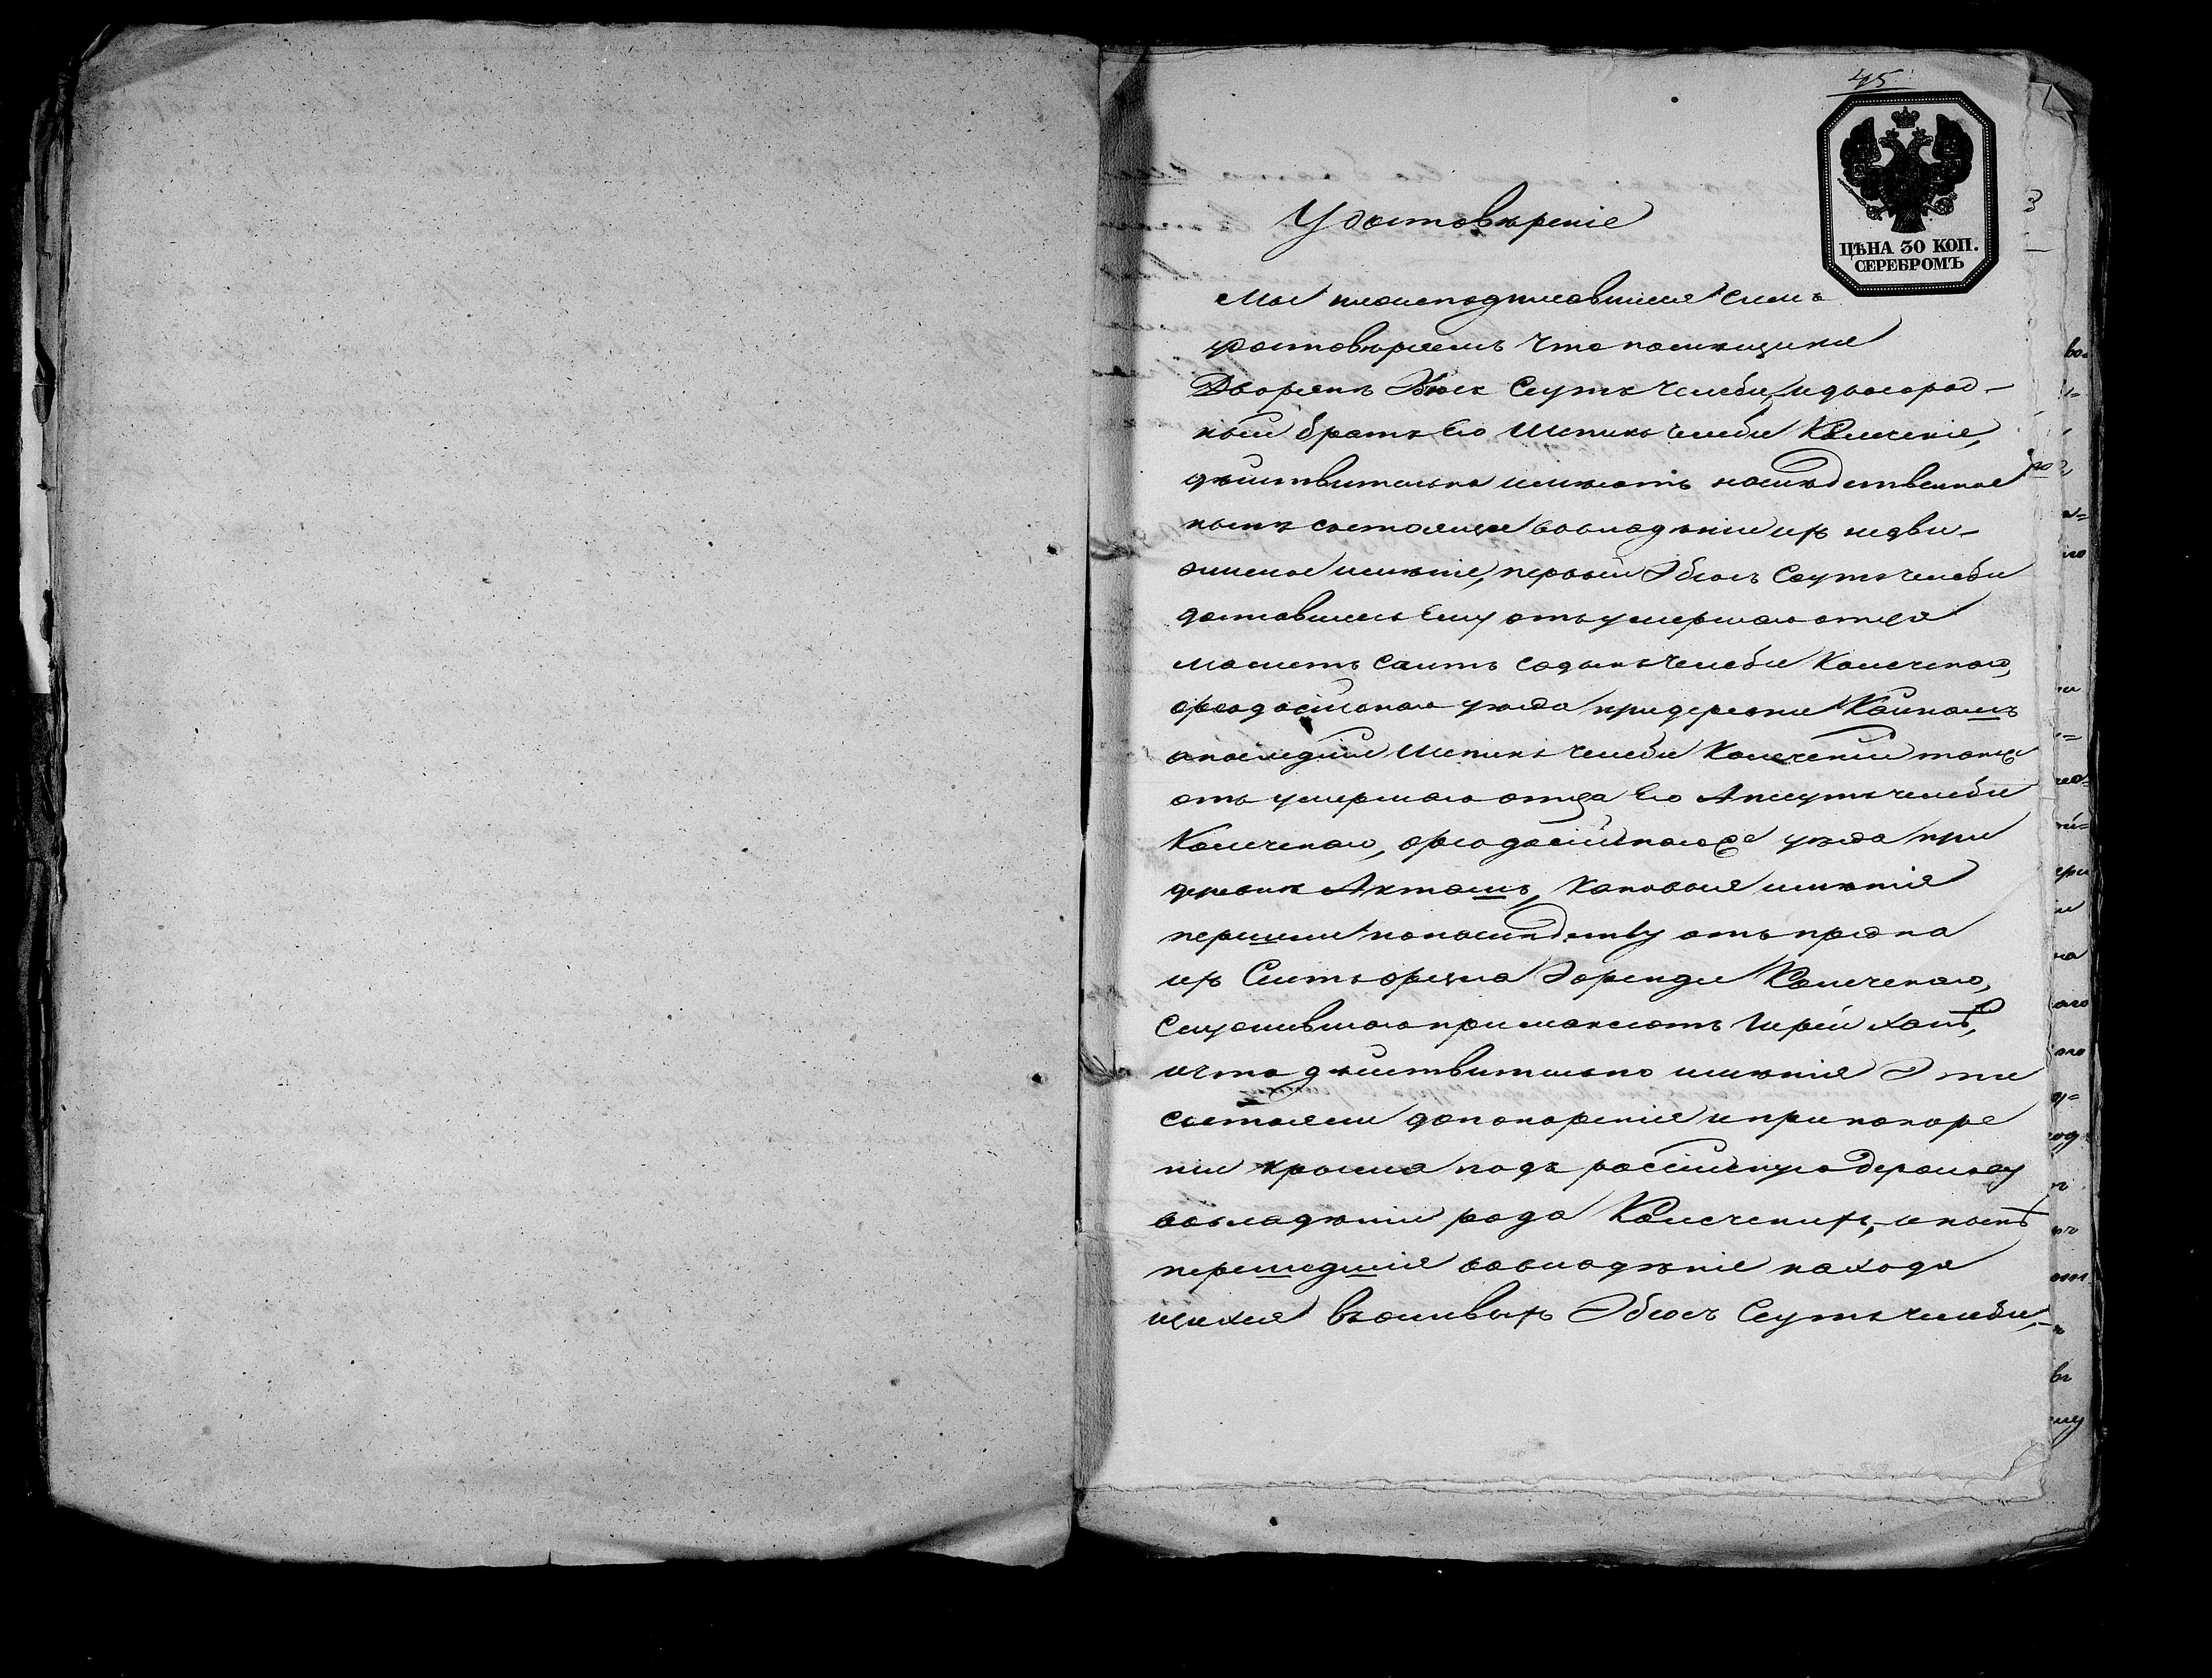 45
ЦѢНА 30 КОП.
СЕРЕБРОМЪ
Удостовѣреніе
Мы нижеподписавшіися симъ
удостовѣряемъ что помѣщики
Дворянъ Сеутъ Челеби, и двоюрод-
ный братъ Его Шепикъ Челеби
дѣйствительно имѣютъ наслѣдственное
нынѣ состоящее вовладѣніи ихъ недви-
жимое имѣніе, первый Абюсъ Сеутъ челеби
доставшеесь Ему отъ умершаго отца
Маметъ Саитъ Садыкъ Челеби Камечскаго,
Ѳеодосійскаго уѣзда при деревни Койкашъ
а послѣдній Шепикъ челеби Камечскій также
отъ умершаго отца Его Апсеутъ челеби
Камечскаго, Ѳеодосійскаго же уѣзда при
деревнѣ Акташъ, каковыя имѣнія
перешли по наслѣдству отъ предка
ихъ Сеитъ Эфенди Камечскаго,
Служившаго при Максютъ Гирей ханѣ,
и что дѣйствительно имѣнія Эти
состояли до покоренія и при покоре
ніи Крыма подъ россійскую державу
вовладѣніи рода Камечскихъ, и нынѣ
перешедшія вовладѣніе находя
щихся въ живыхъ Абюсъ Сеутъ челеби,